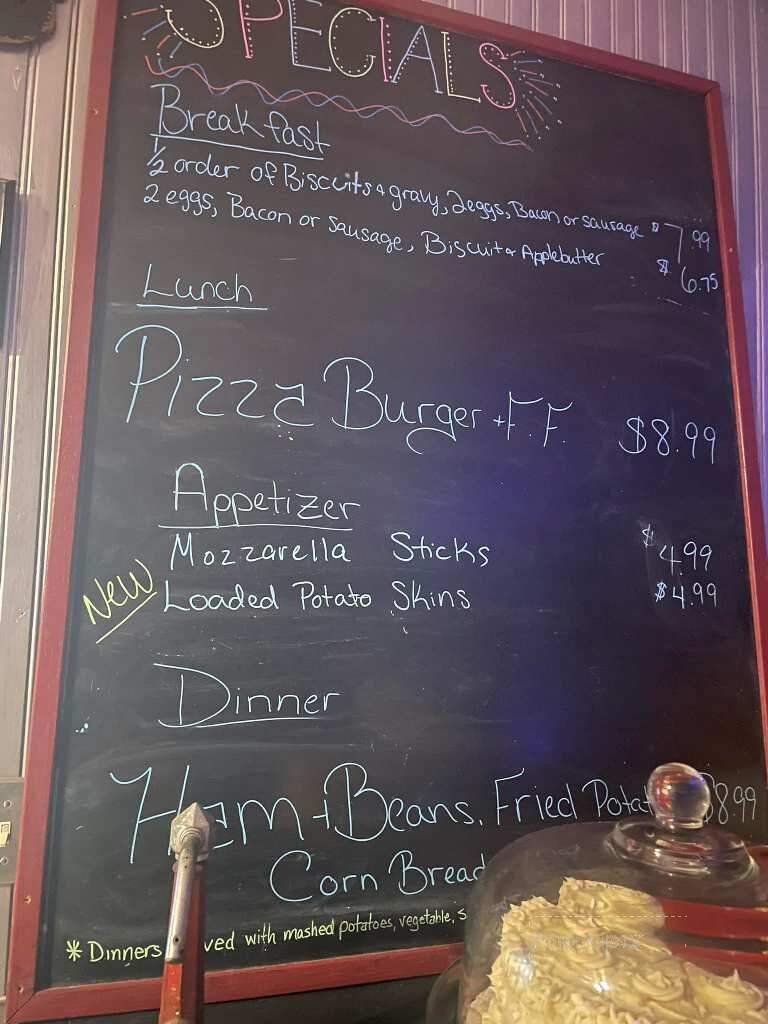 SPECIALS
Breakfast
1/2 order of Biscuits & gravy, 2eggs, Bacon or sausage $7.99
2 eggs, Bacon or Sausage, Biscuit & Applebutter $6.75
Lunch
Pizza Burger + F.F. $8.99
Appetizer
Mozzarella Sticks $4.99
NEW Loaded Potato Skins $4.99
Dinner
Ham + Beans, Fried $8.99
Corn Bread
* Dinners with mashed potatoes, vegetable,